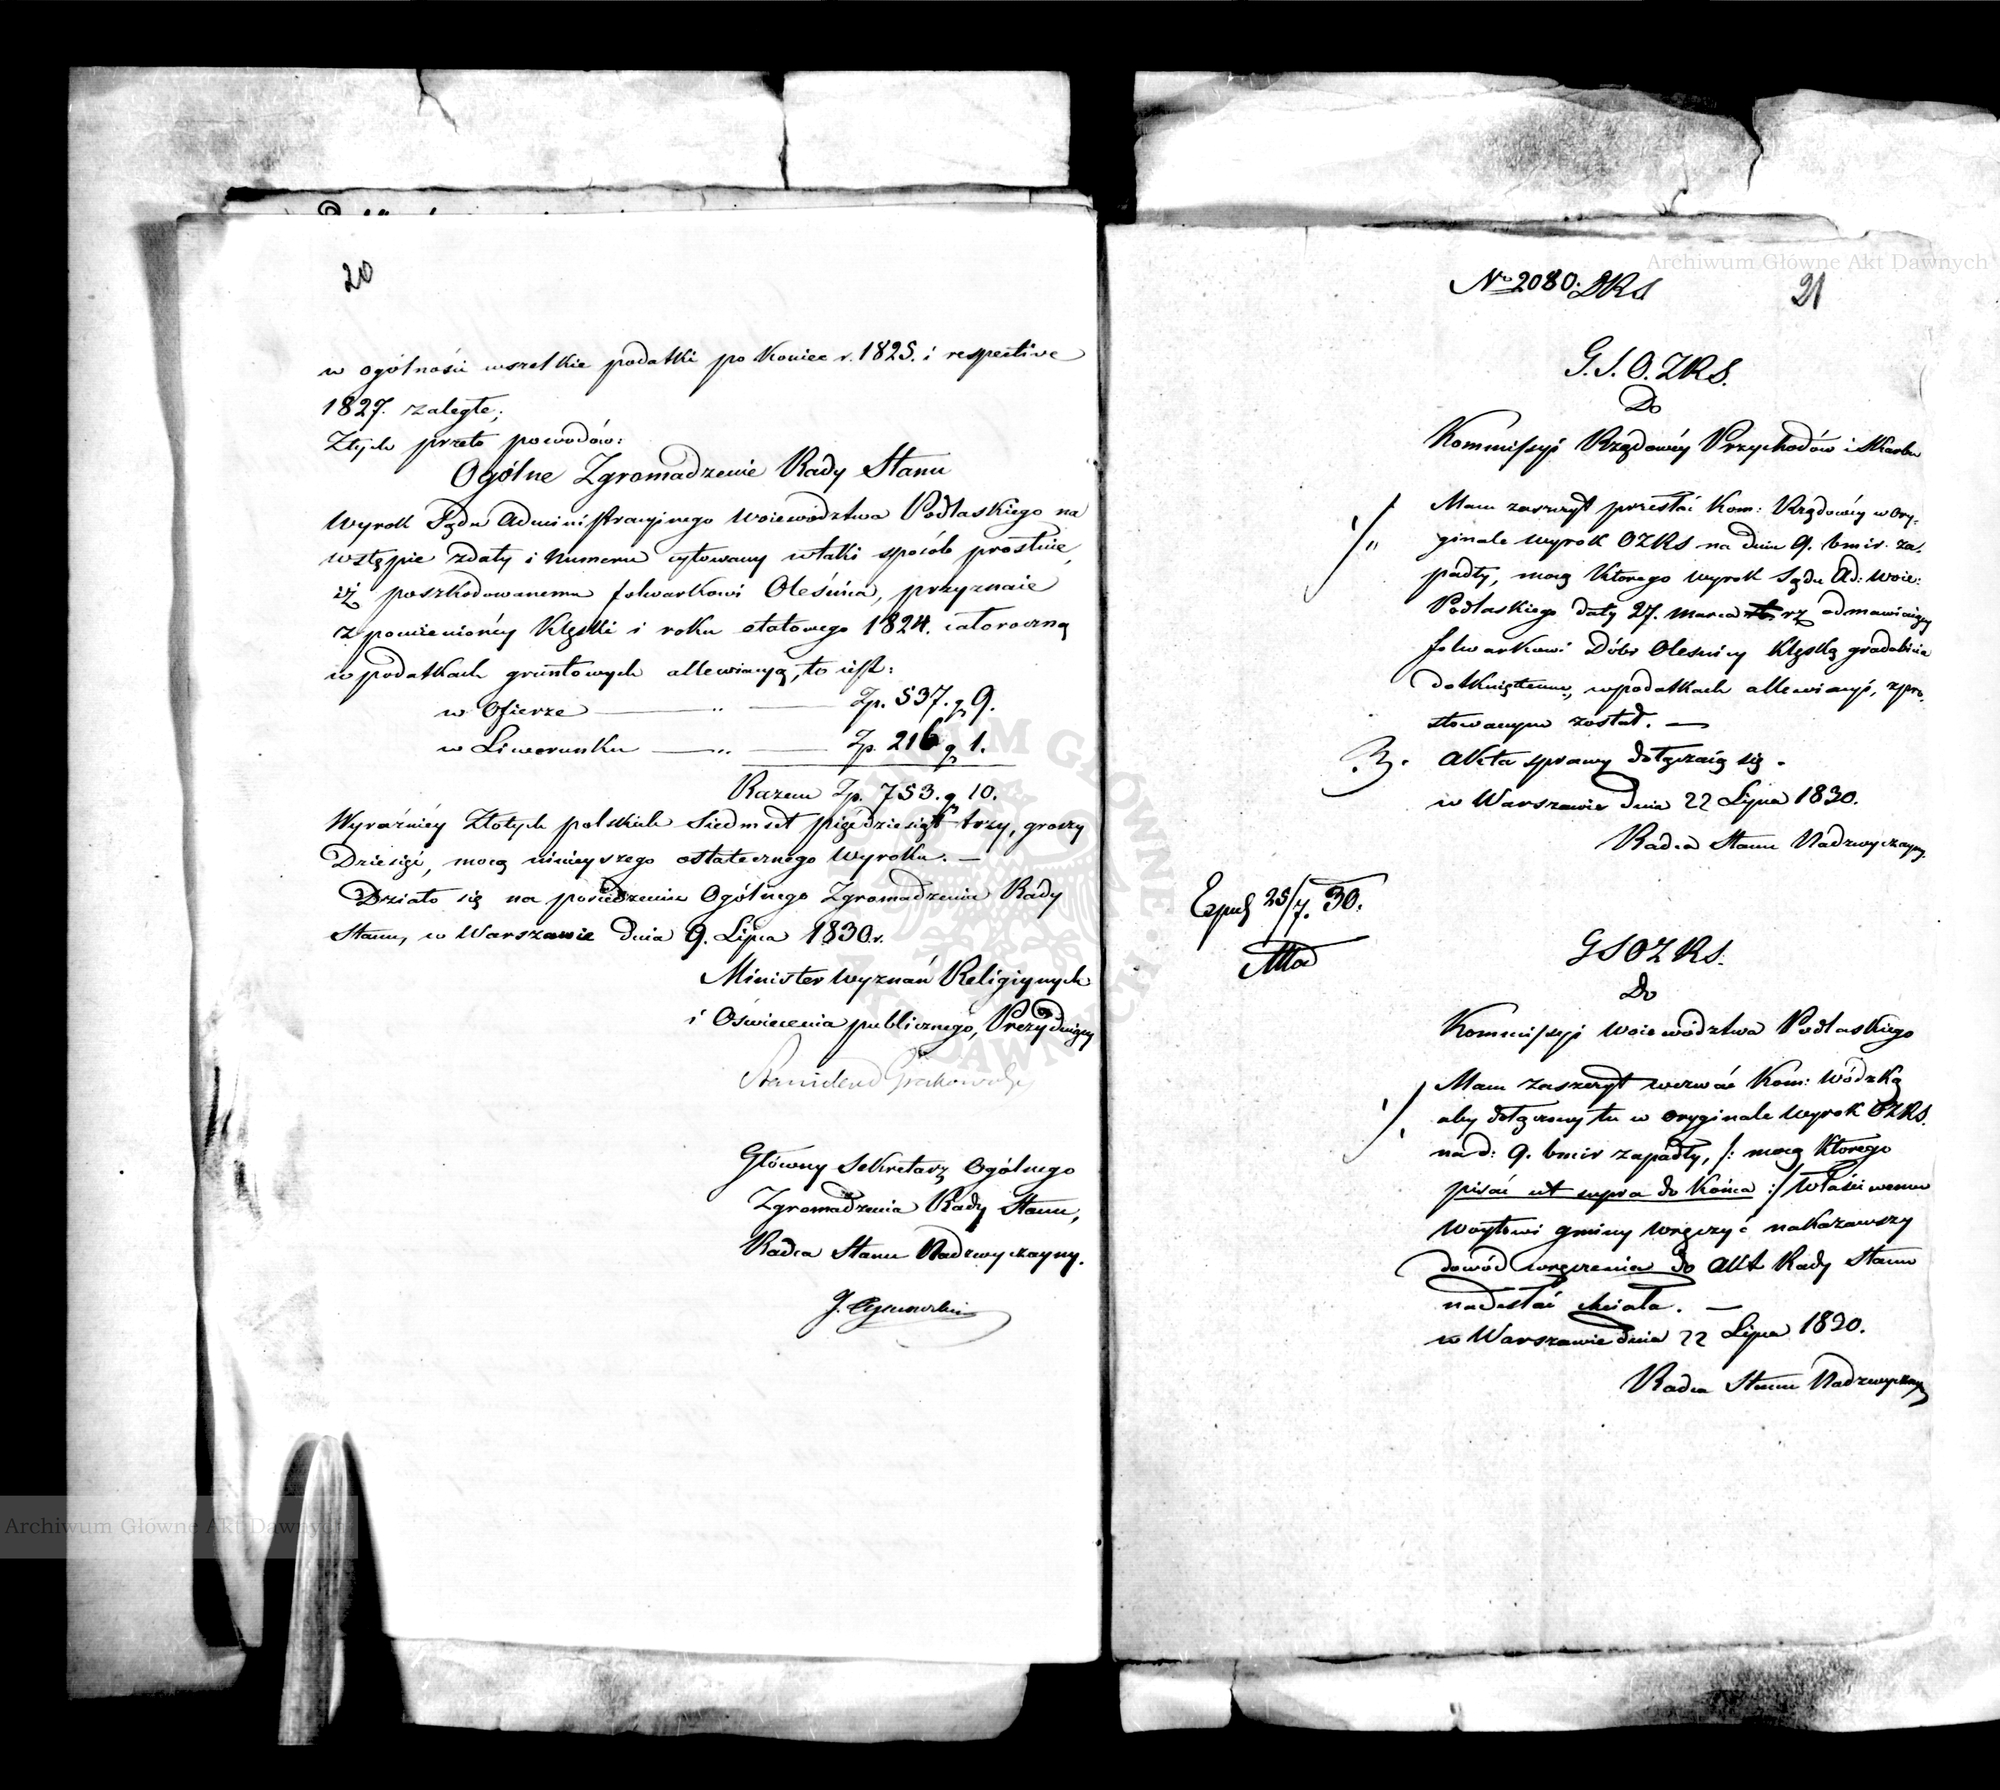 20
w ogólności wszelkie podatki po koniec r. 1825. i respective
1827. zaległe;
Z tych przeto powodów:
Ogólne Zgromadzenie Rady Stanu
Wyrok Sądu Administracyjnego Woiewództwa Podlaskiego na
wstępie z daty i Numeru cytowany w taki sposób prostuie,
iż poszkodowanemu folwarkowi Oleśnica, przyznaie
z pomienionéy klęski i roku etatowego 1824. całoroczną
w podatkach gruntowych allewiacyą, to iest:
w Ofierze — " — Zp. 537. g 9.
w Liwerunku — " — Zp. 216 g 1.
Razem Zp. 753. g 10.
Wyraźniéy Złotych polskich Siedmset pięćdziesiąt trzy, groszy
Dziesięć, mocą ninieyszego ostatecznego Wyroku. —
Działo się na posiedzeniu Ogólnego Zgromadzenia Rady
Stanu, w Warszawie dnia 9. Lipca 1830 r.
Minister Wyznań Religiynych
i Oświecenia publicznego, Prezyduiący
Stanisław Grabowski
Główny Sekretarz Ogólnego
Zgromadzenia Rady Stanu,
Radca Stanu Nadzwyczayny.
J.
No 2080. ZRS
21
G. S. O. ZRS.
Do
Kommissyi Rządowéy Przychodów i Skarbu
Mam zaszczyt przesłać Kom: Rządowéy w Ory-
ginale wyrok OZRS na dniu 9. bmir. za-
padły, mocą którego wyrok Sądu Ad: Woie:
Podlaskiego daty 27. Marca rz odmawiaiący
folwarkowi Dóbr Oleśnicy klęską gradobicia
dotkniętemu, w podatkach allewiacyi, spro-
stowanym został. —
3. Akta sprawy dołączaią się.
w Warszawie dnia 22 Lipca 1830.
Radca Stanu Nadzwyczayny.
Exped 25/7. 30.
GSOZRS.
Do
Kommissyi Woiewództwa Podlaskiego
Mam zaszczyt wezwać Kom: Wódzką
aby dołączony tu w oryginale wyrok OZRS.
na d: 9. bmir zapadły, /: mocą którego
pisać ut supra do końca :/ Właściwemu
Woytowi gminy wręczyć nakazawszy
dowód wręczenia do Akt Rady Stanu
nadesłać chciała. —
w Warszawie dnia 22 Lipca 1830.
Radca Stanu Nadzwyczayny
Archiwum Główne Akt Dawnych
Archiwum Główne Akt Dawnych